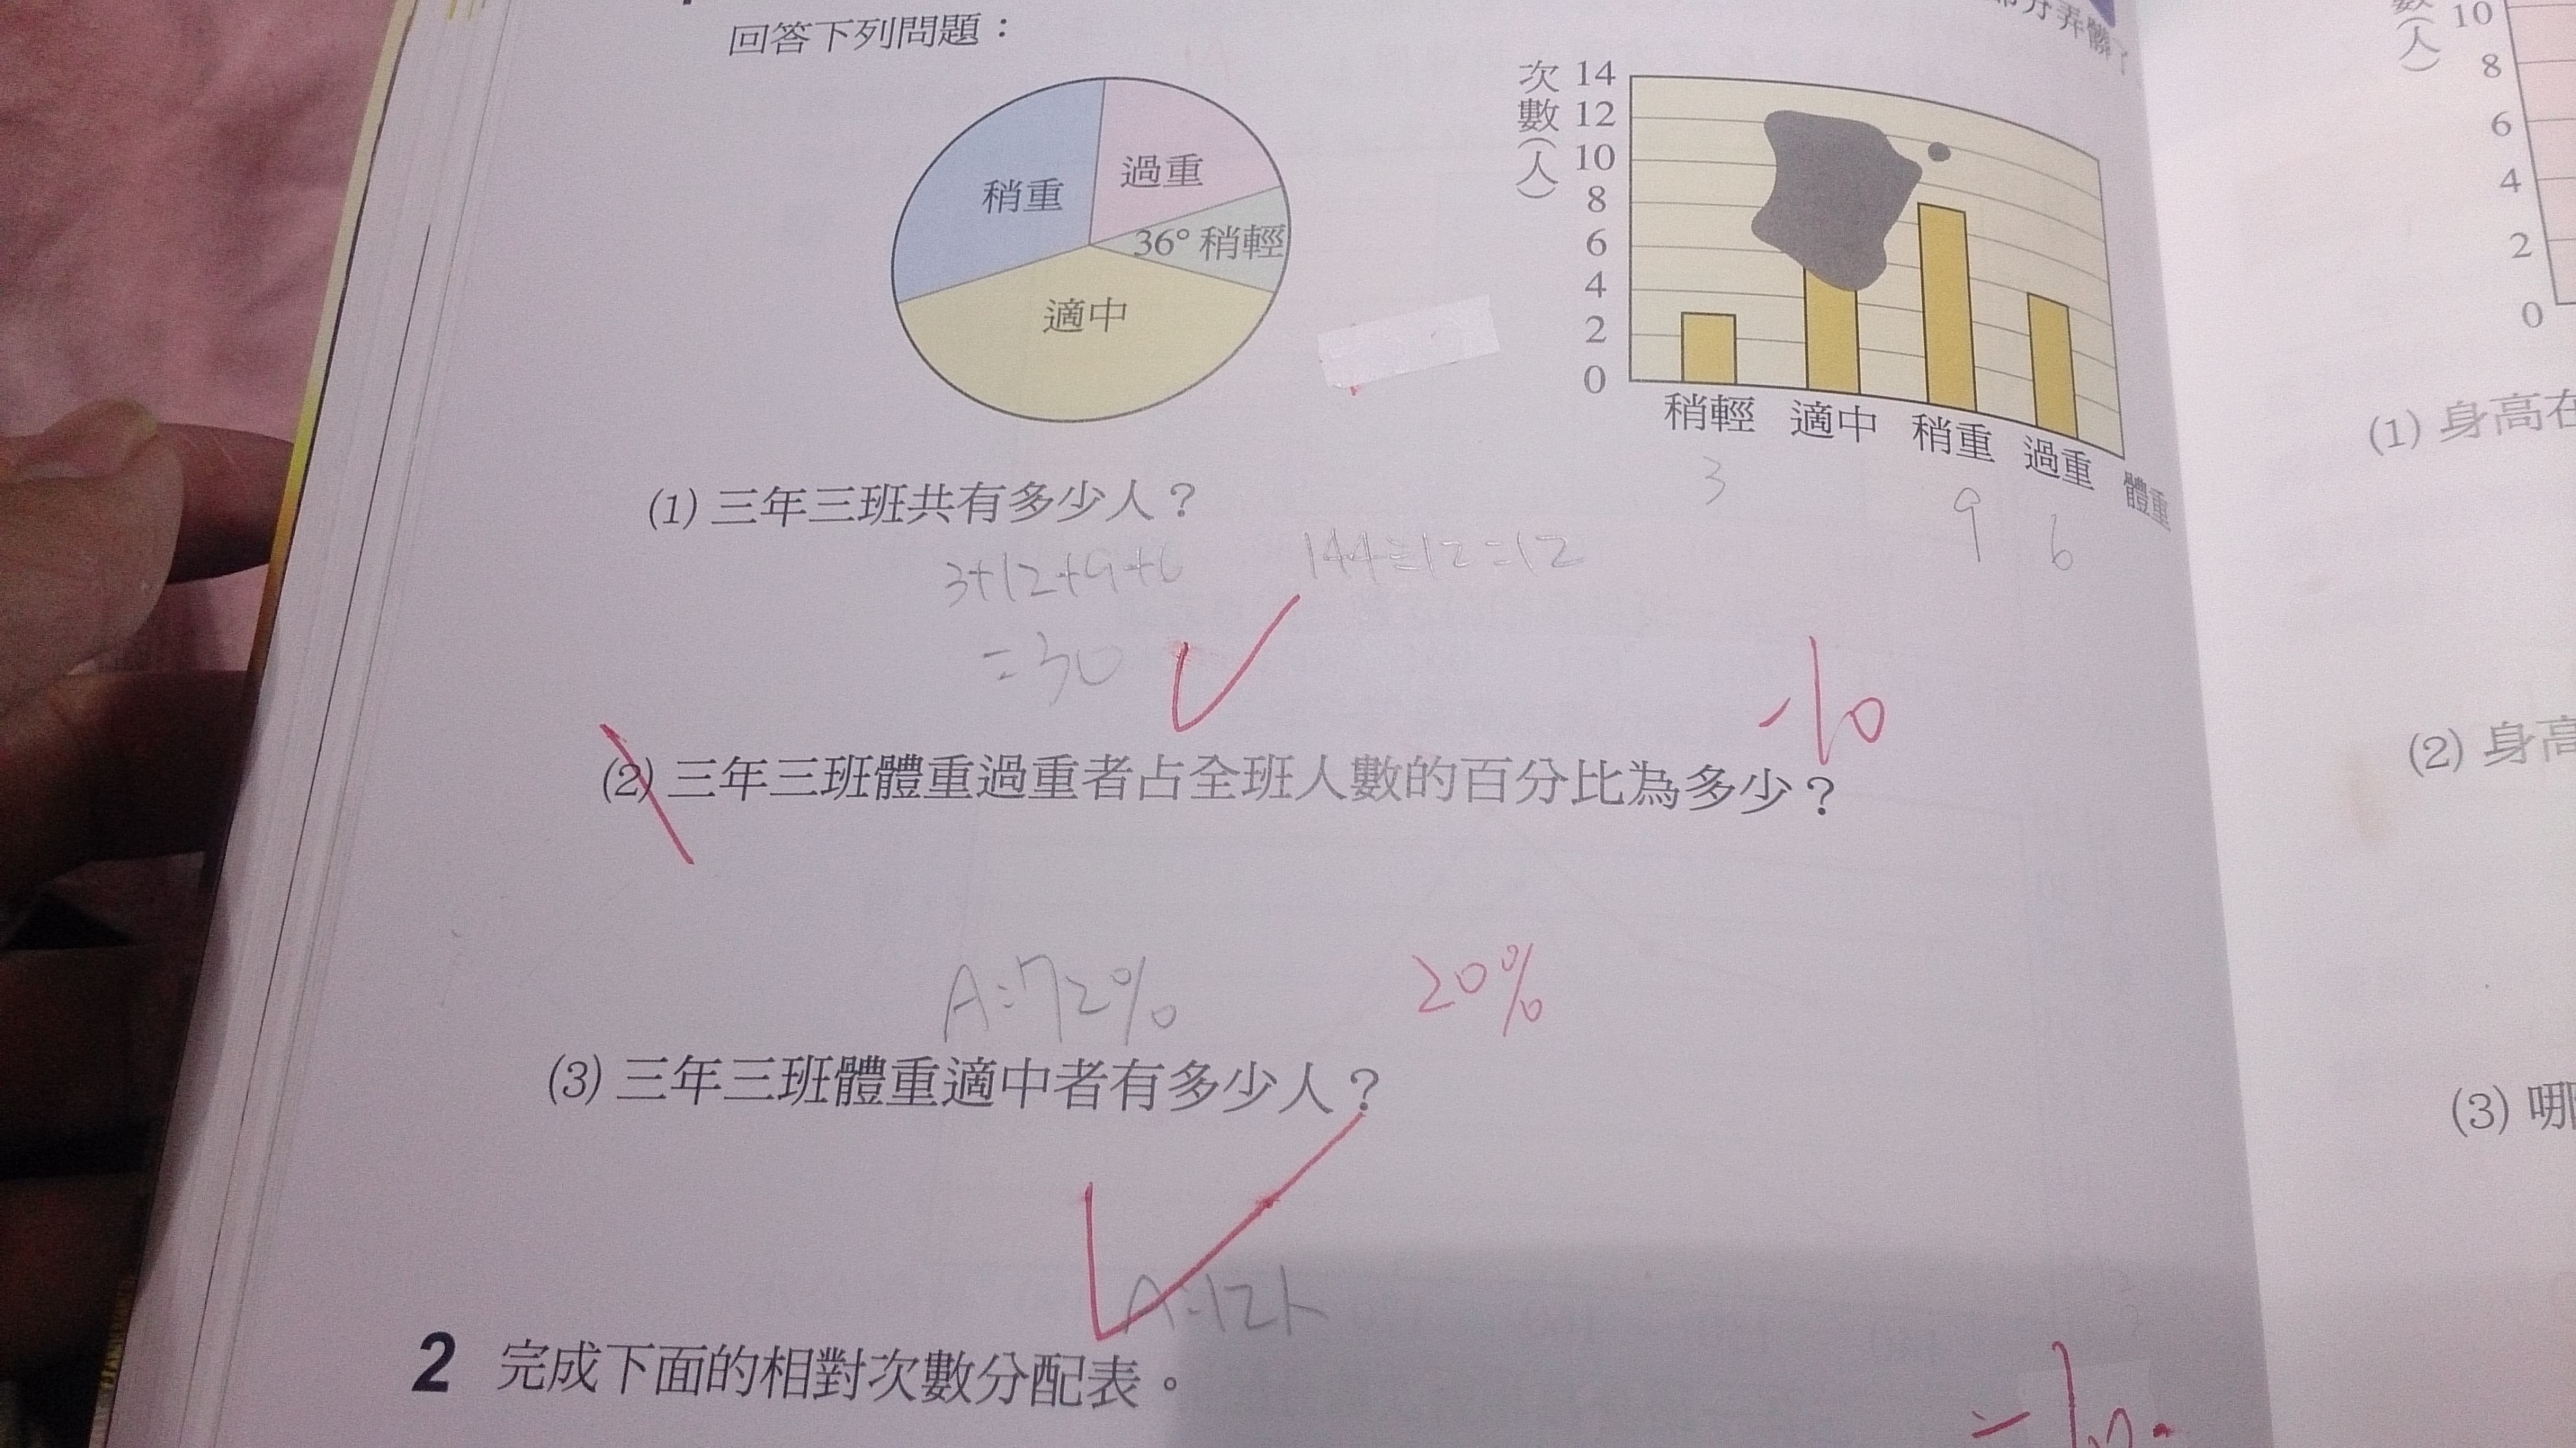 回答下列問題：
過重
稍重
36° 稍輕
適中
次數(人)
14
12
10
8
6
4
2
0
稍輕 適中 稍重 過重 體重
3 9 6
(1) 三年三班共有多少人？
3+12+9+6 144÷12=12
=30
-10
(2) 三年三班體重過重者占全班人數的百分比為多少？
A:72% 20%
(3) 三年三班體重適中者有多少人？
A:12人
2 完成下面的相對次數分配表。
弄髒了
數(人)
10
8
6
4
2
0
(1) 身高在
(2) 身高
(3) 哪